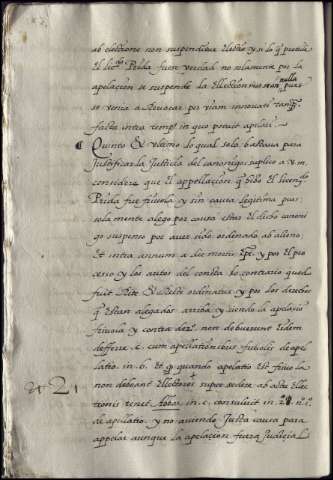 ab electione non suspenditur electio, y si lo q pretende
el licdo Prida fuera verdad no solamente por la
apelacion se suspende la Election mas nulla pues
se venia a Revocar per viam innovati tanq
facta intra tempus in quo potuit apelari
Quinto Et ultimo lo qual solo bastava para
Justificar la Justicia del canonigo suplico a v. m.
considere que el appellacion q hizo el licendo
Prida fue frivola y sin causa legitima pues
sola mente alego por causa estar el dicho canoni
go suspenso por aver sido ordenado ab alieno
Et intra annum a die mortis Epi. y por el pro
cesso y los autos del consta lo contrario quod
fuit Rite Et Recte ordinatus y por los derechos
q Estan alegados arriba y siendo la apelacion
frivola y contra der non debuerunt eidem
defferre c. cum apellationibus frivolis de apel
latio. in. 6. Et q quando apelatio Est frivola
non debeant Electores super sedere ab actu Elec
tionis tenet Abbas in. c. consuluit in. 2. n.
de apellatio. y no aviendo Justa causa para
appelar aunque la apelacion fuera Judicial
21